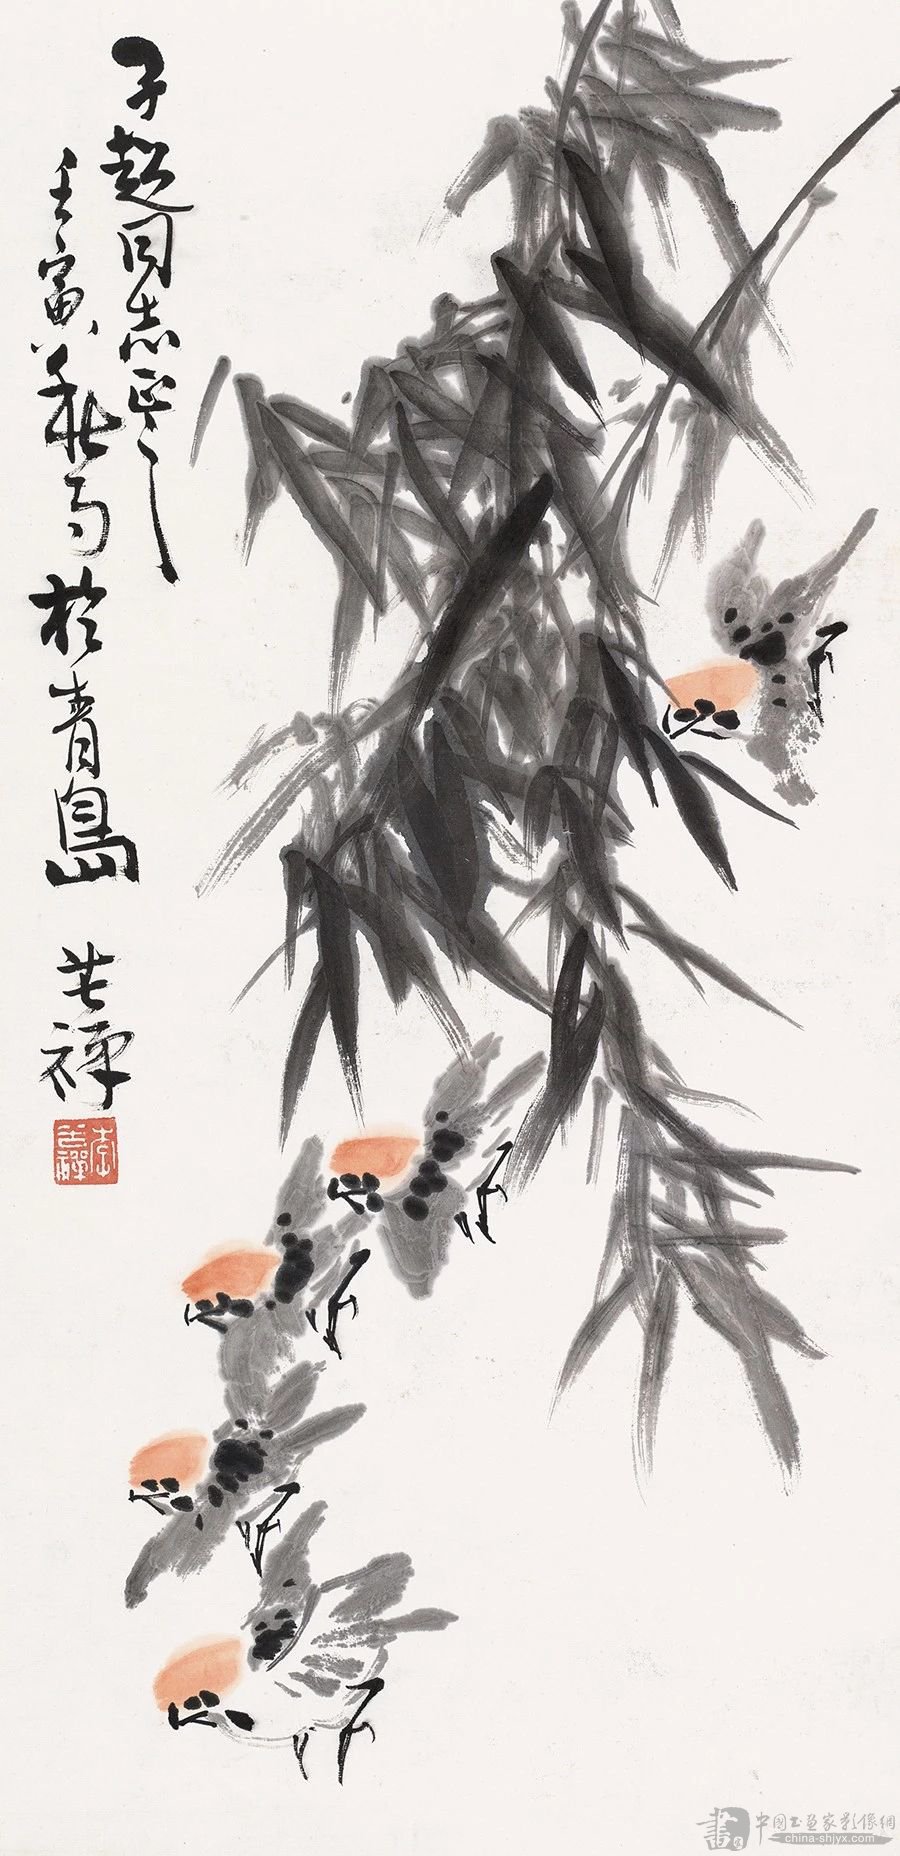 子超同志正之
壬寅秋写於青島
苦禅
李苦禅
中国书画家影像網
china-shjyx.com